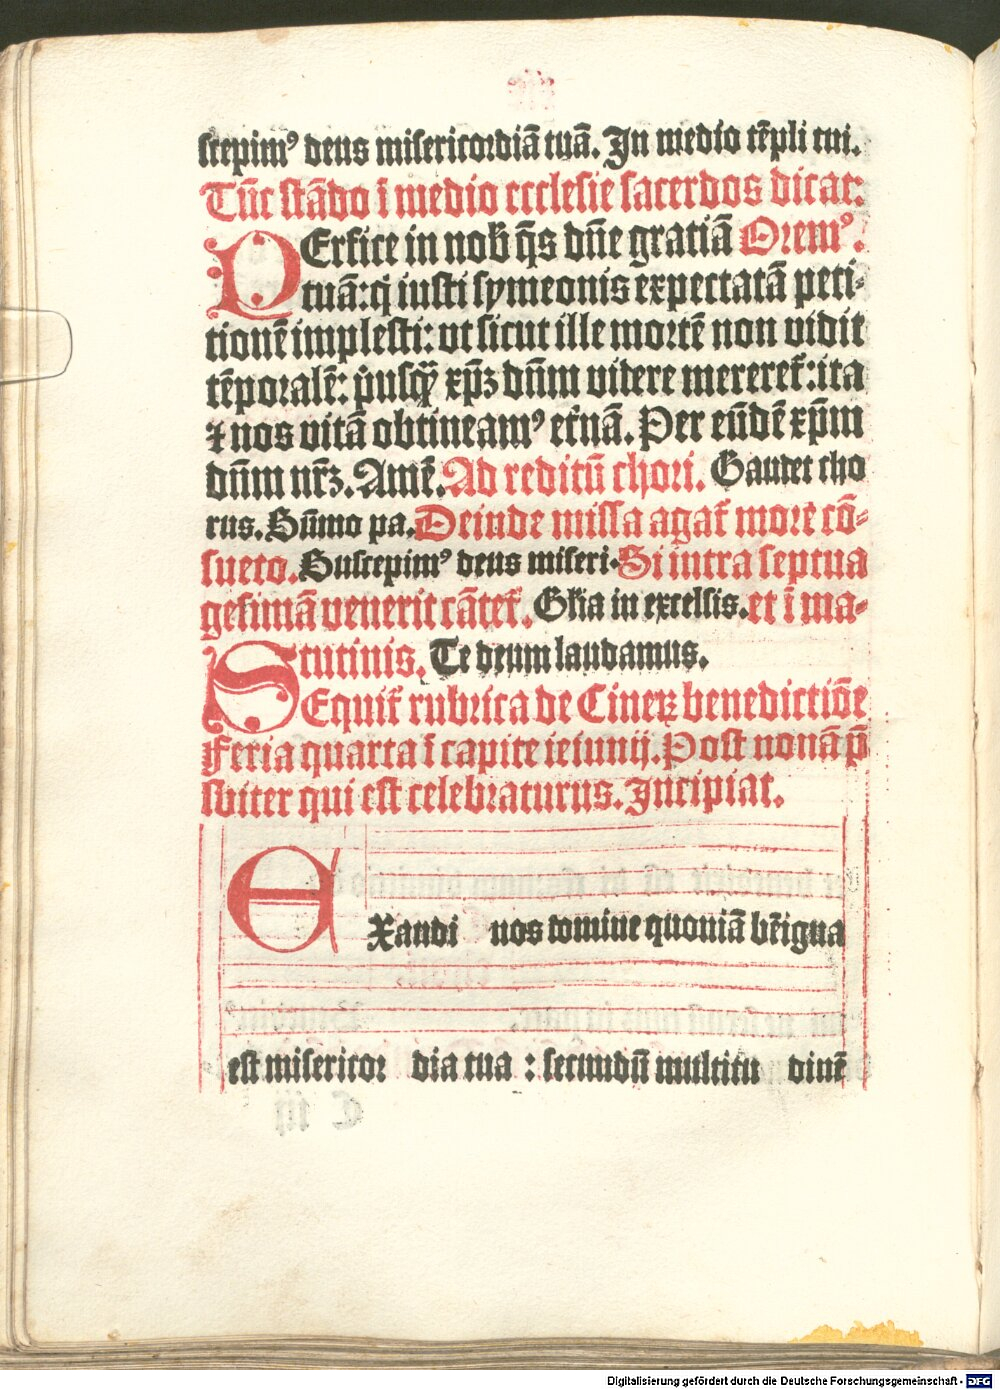 scepimꝰ deus misericordiā tuā. In medio tēpli tui.
Tūc stādo ī medio ecclesie sacerdos dicat:
PErfice in nob̄ q̄s dn̄e gratiā Oremꝰ.
tuā: qͥ iusti symeonis expectatā peti-
tionē implesti: ut sicut ille mortē non vidit
tēporalē: pͥusqͣꝫ xp̄ꝫ dn̄m videre mereret᷑: ita
⁊ nos vitā obtineamꝰ et̄nā. Per eūdē xp̄m
dn̄m nr̄ꝫ. Amē. Ad reditū chori. Gaudet cho
rus. Sūmo pa. Deinde missa agat᷑ more cō-
sueto. Suscepimꝰ deus miseri. Si intra septua
gesimā venerit cātet᷑. Gl̄ia in excelsis. et ī ma-
tutinis. Te deum laudamus.
SEquit᷑ rubrica de Cineꝝ benedictiōe
Feria quarta ī capite ieiunij. Post nonā p̄
sbiter qui est celebraturus. Incipiat.
EXaudi nos domine quoniā bēigna
est misericor dia tua : secundū multitu dinē
C iij
Digitalisierung gefördert durch die Deutsche Forschungsgemeinschaft - DFG